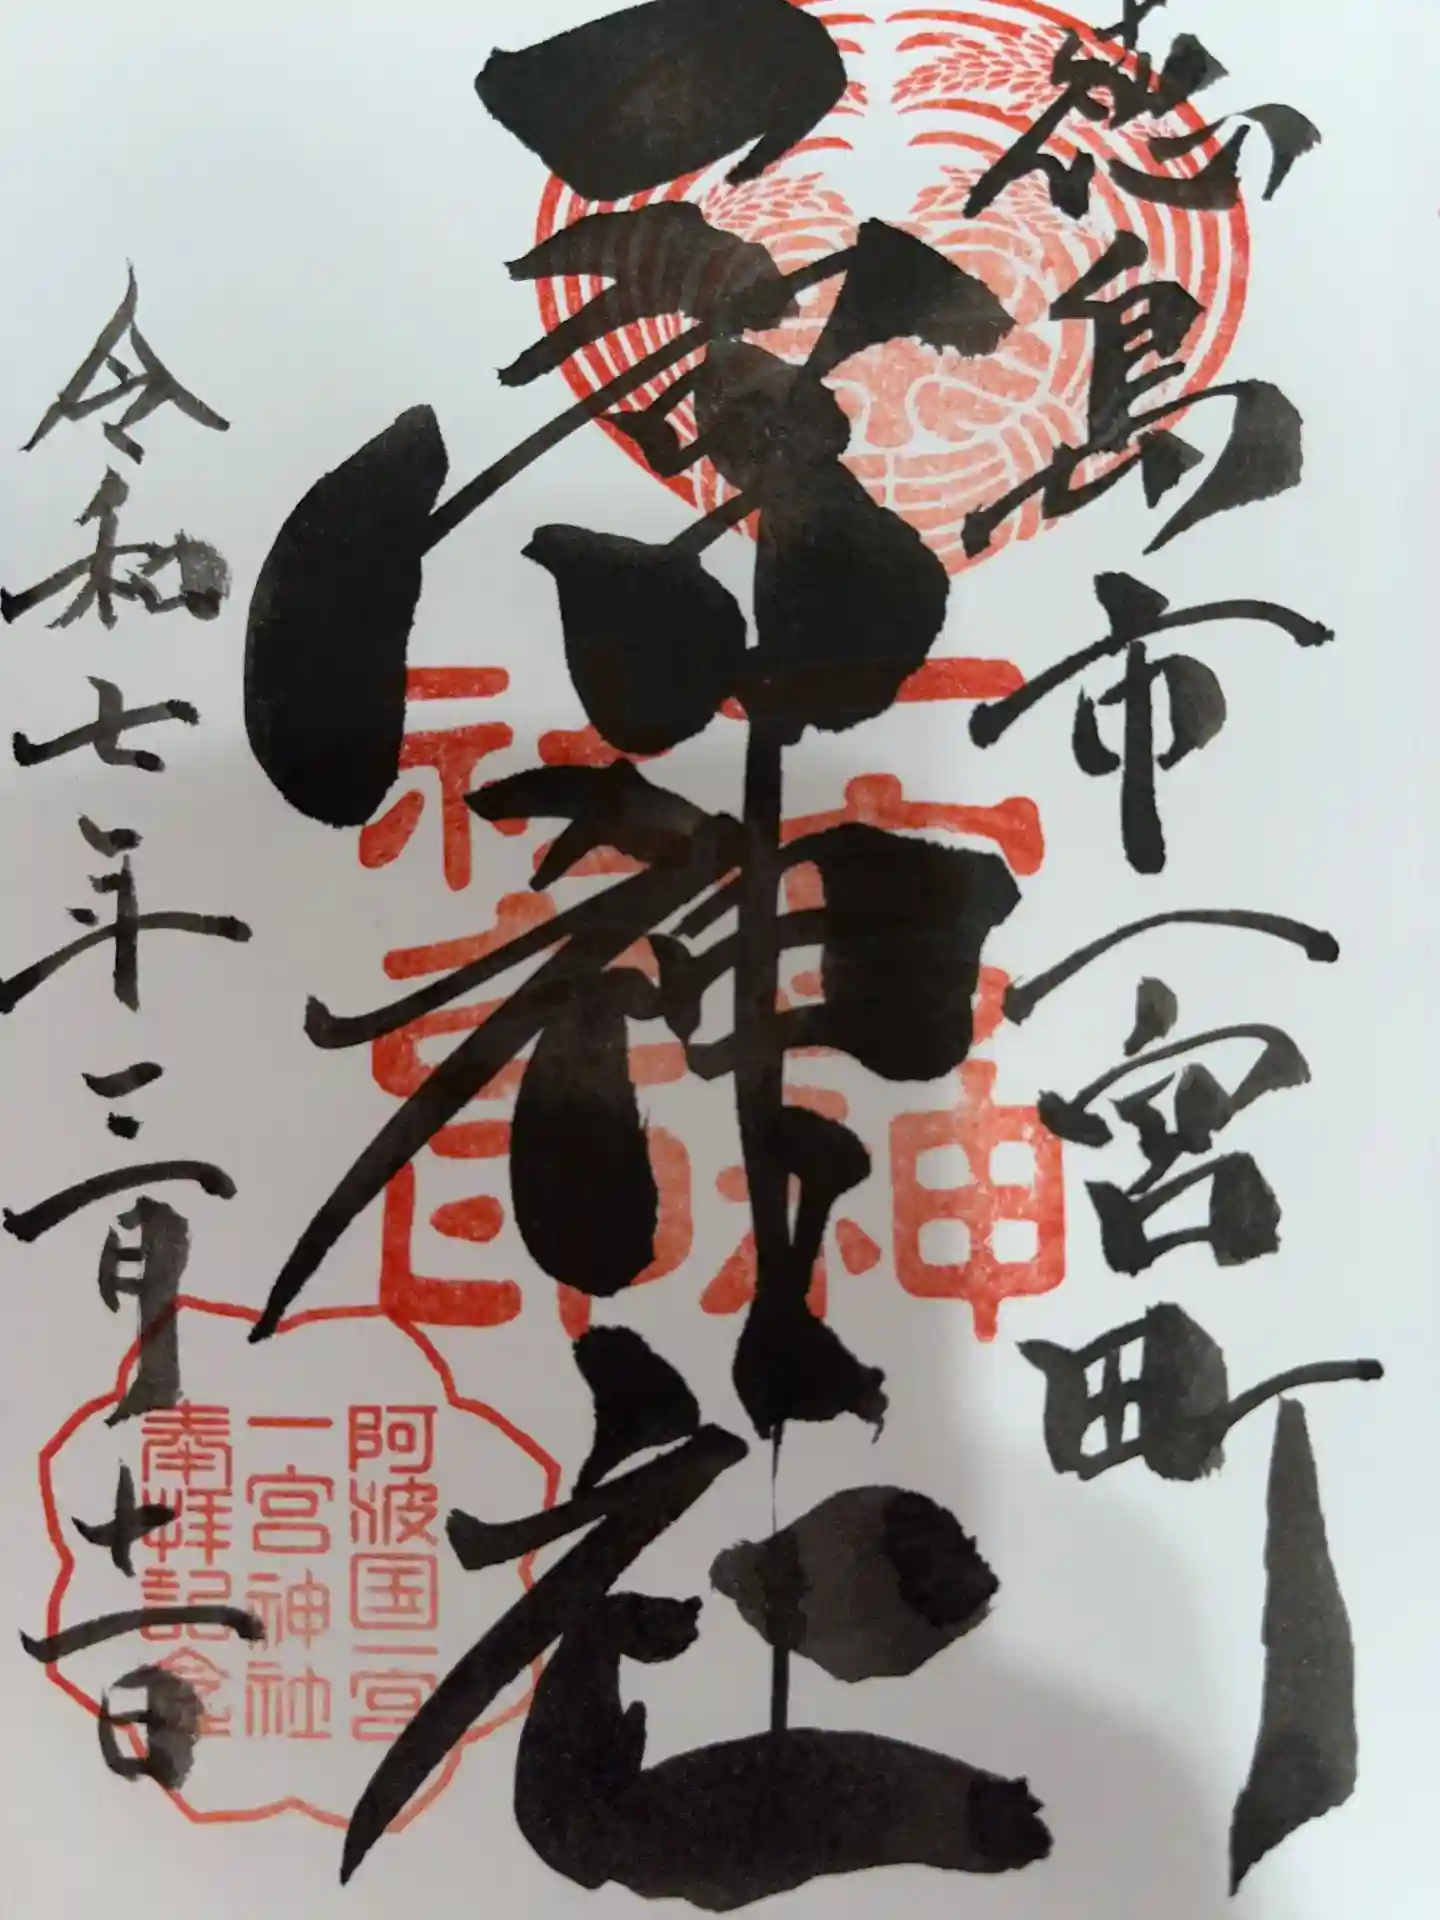 徳島市一宮町
一宮神社
一宮神社宮司印
令和七年三月十一日
阿波国一宮
一宮神社
奉拝記念